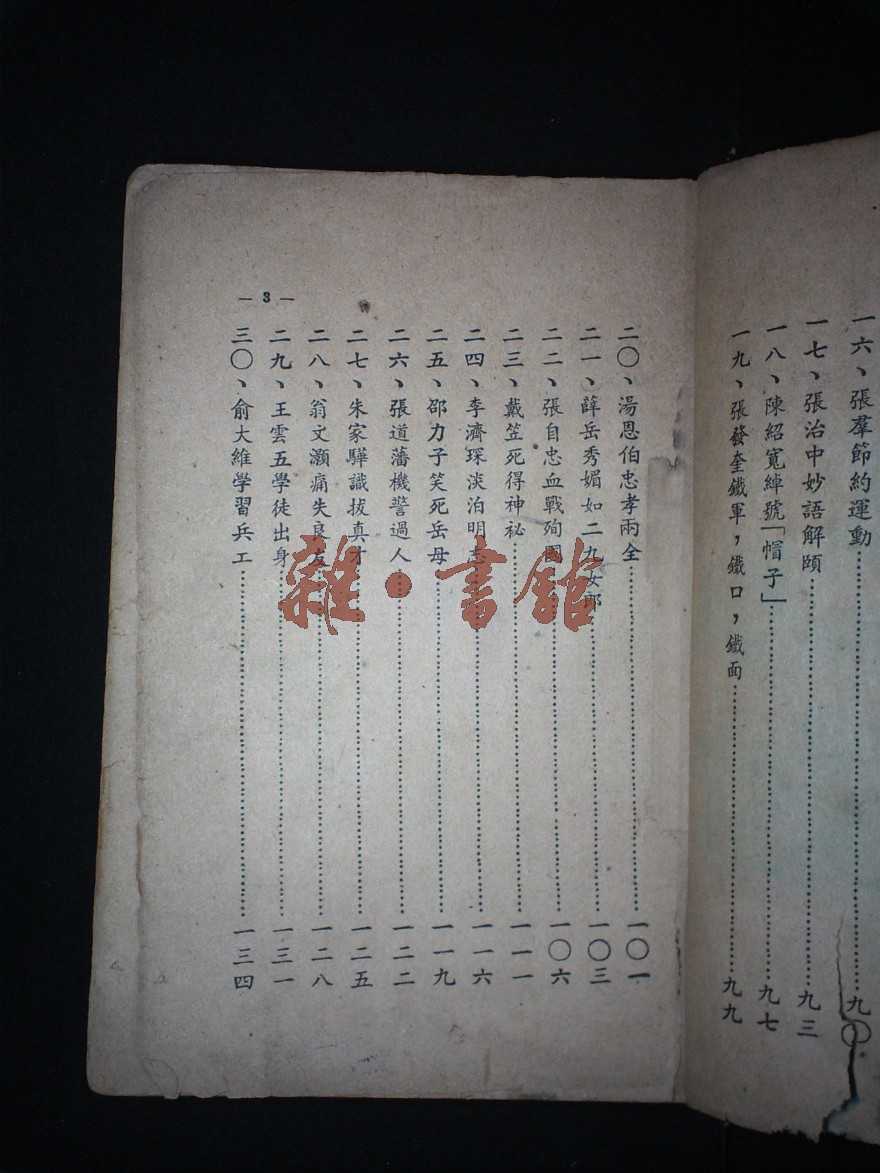 一六、張羣節約運動……九〇
一七、張治中妙語解頤……九三
一八、陳紹寬綽號「帽子」……九七
一九、張發奎鐵軍，鐵口，鐵面……九九
— 3 —
二〇、湯恩伯忠孝兩全……一〇一
二一、薛岳秀媚如二九女郎……一〇三
二二、張自忠血戰殉國……一〇六
二三、戴笠死得神祕……一一一
二四、李濟琛淡泊明志……一一六
二五、邵力子笑死岳母……一一九
二六、張道藩機警過人……一二二
二七、朱家驊識拔真才……一二五
二八、翁文灝痛失良友……一二八
二九、王雲五學徒出身……一三一
三〇、俞大維學習兵工……一三四
雜·書館